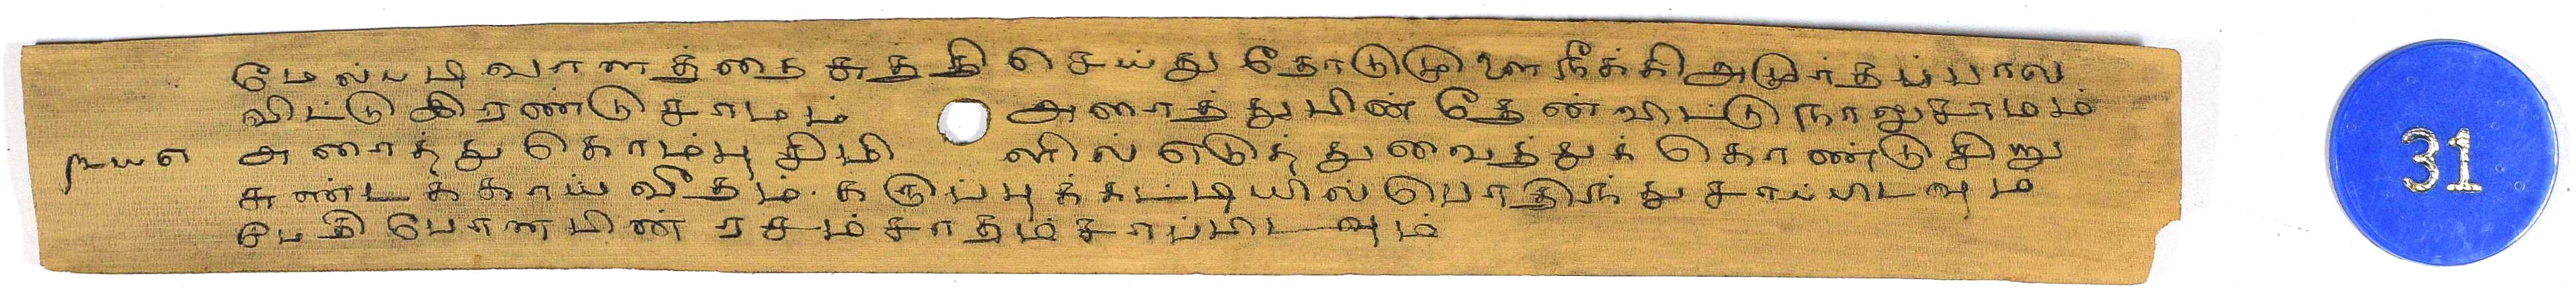 மேல்படி வாளத்தை சுத்தி செய்து தோடுமுளைநீக்கி அமுர்தப்பால
விட்டு இரண்டு சாமம் அரைத்துபின் தேன்விட்டு நாலுசாமம்
௩௰௭ அரைத்து கொம்பு சிமிளில் எடுத்துவைத்துக் கொண்டு சிறு
சுண்டக்காய் வீதம். கருப்புக்கட்டியில் பொதிந்து சாப்பிடவும
பேதி போனபின் ரசம்சாதம்சாப்பிடவும்
31